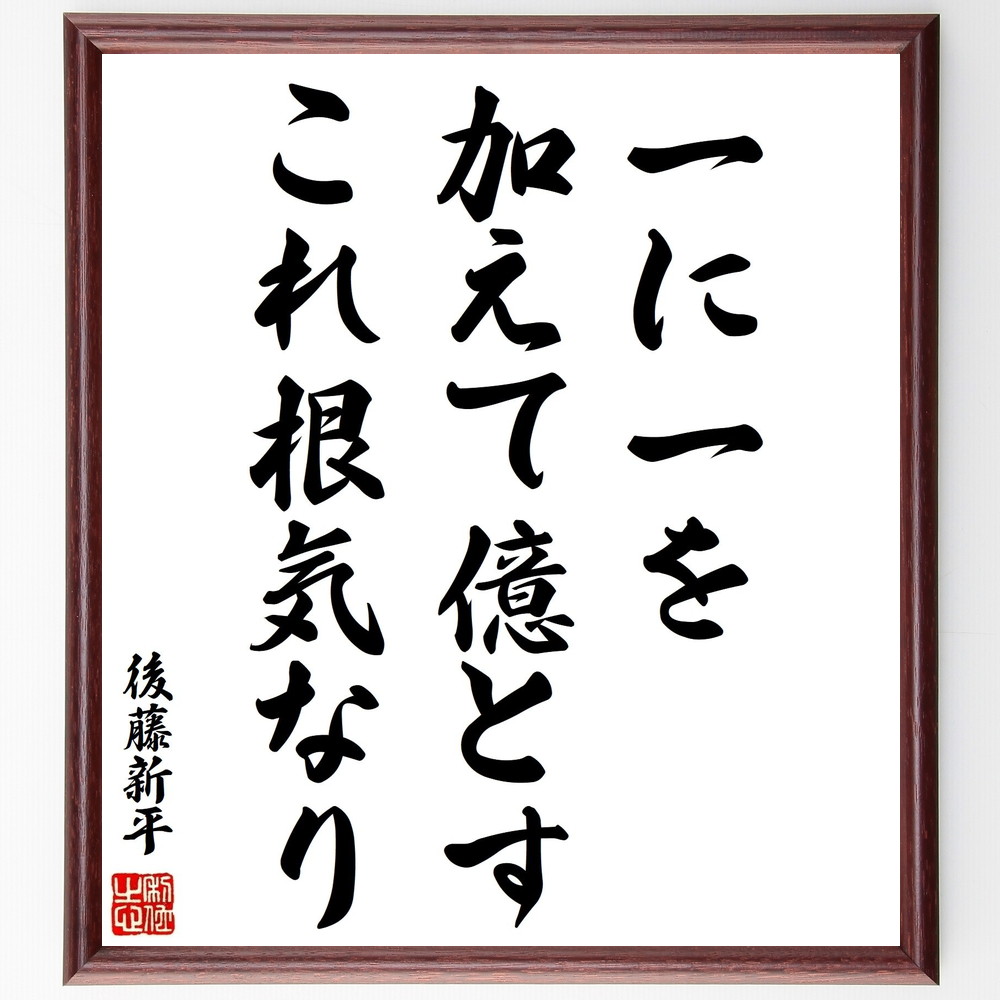 一に一を
加えて億とす
これ根気なり
後藤新平